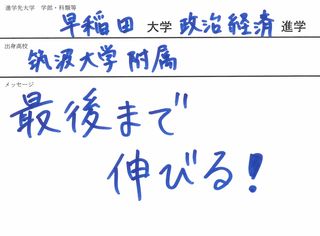 進学先大学 学部・科類等
早稲田 大学 政治経済 進学
出身高校
筑波大学附属
メッセージ
最後まで
伸びる!